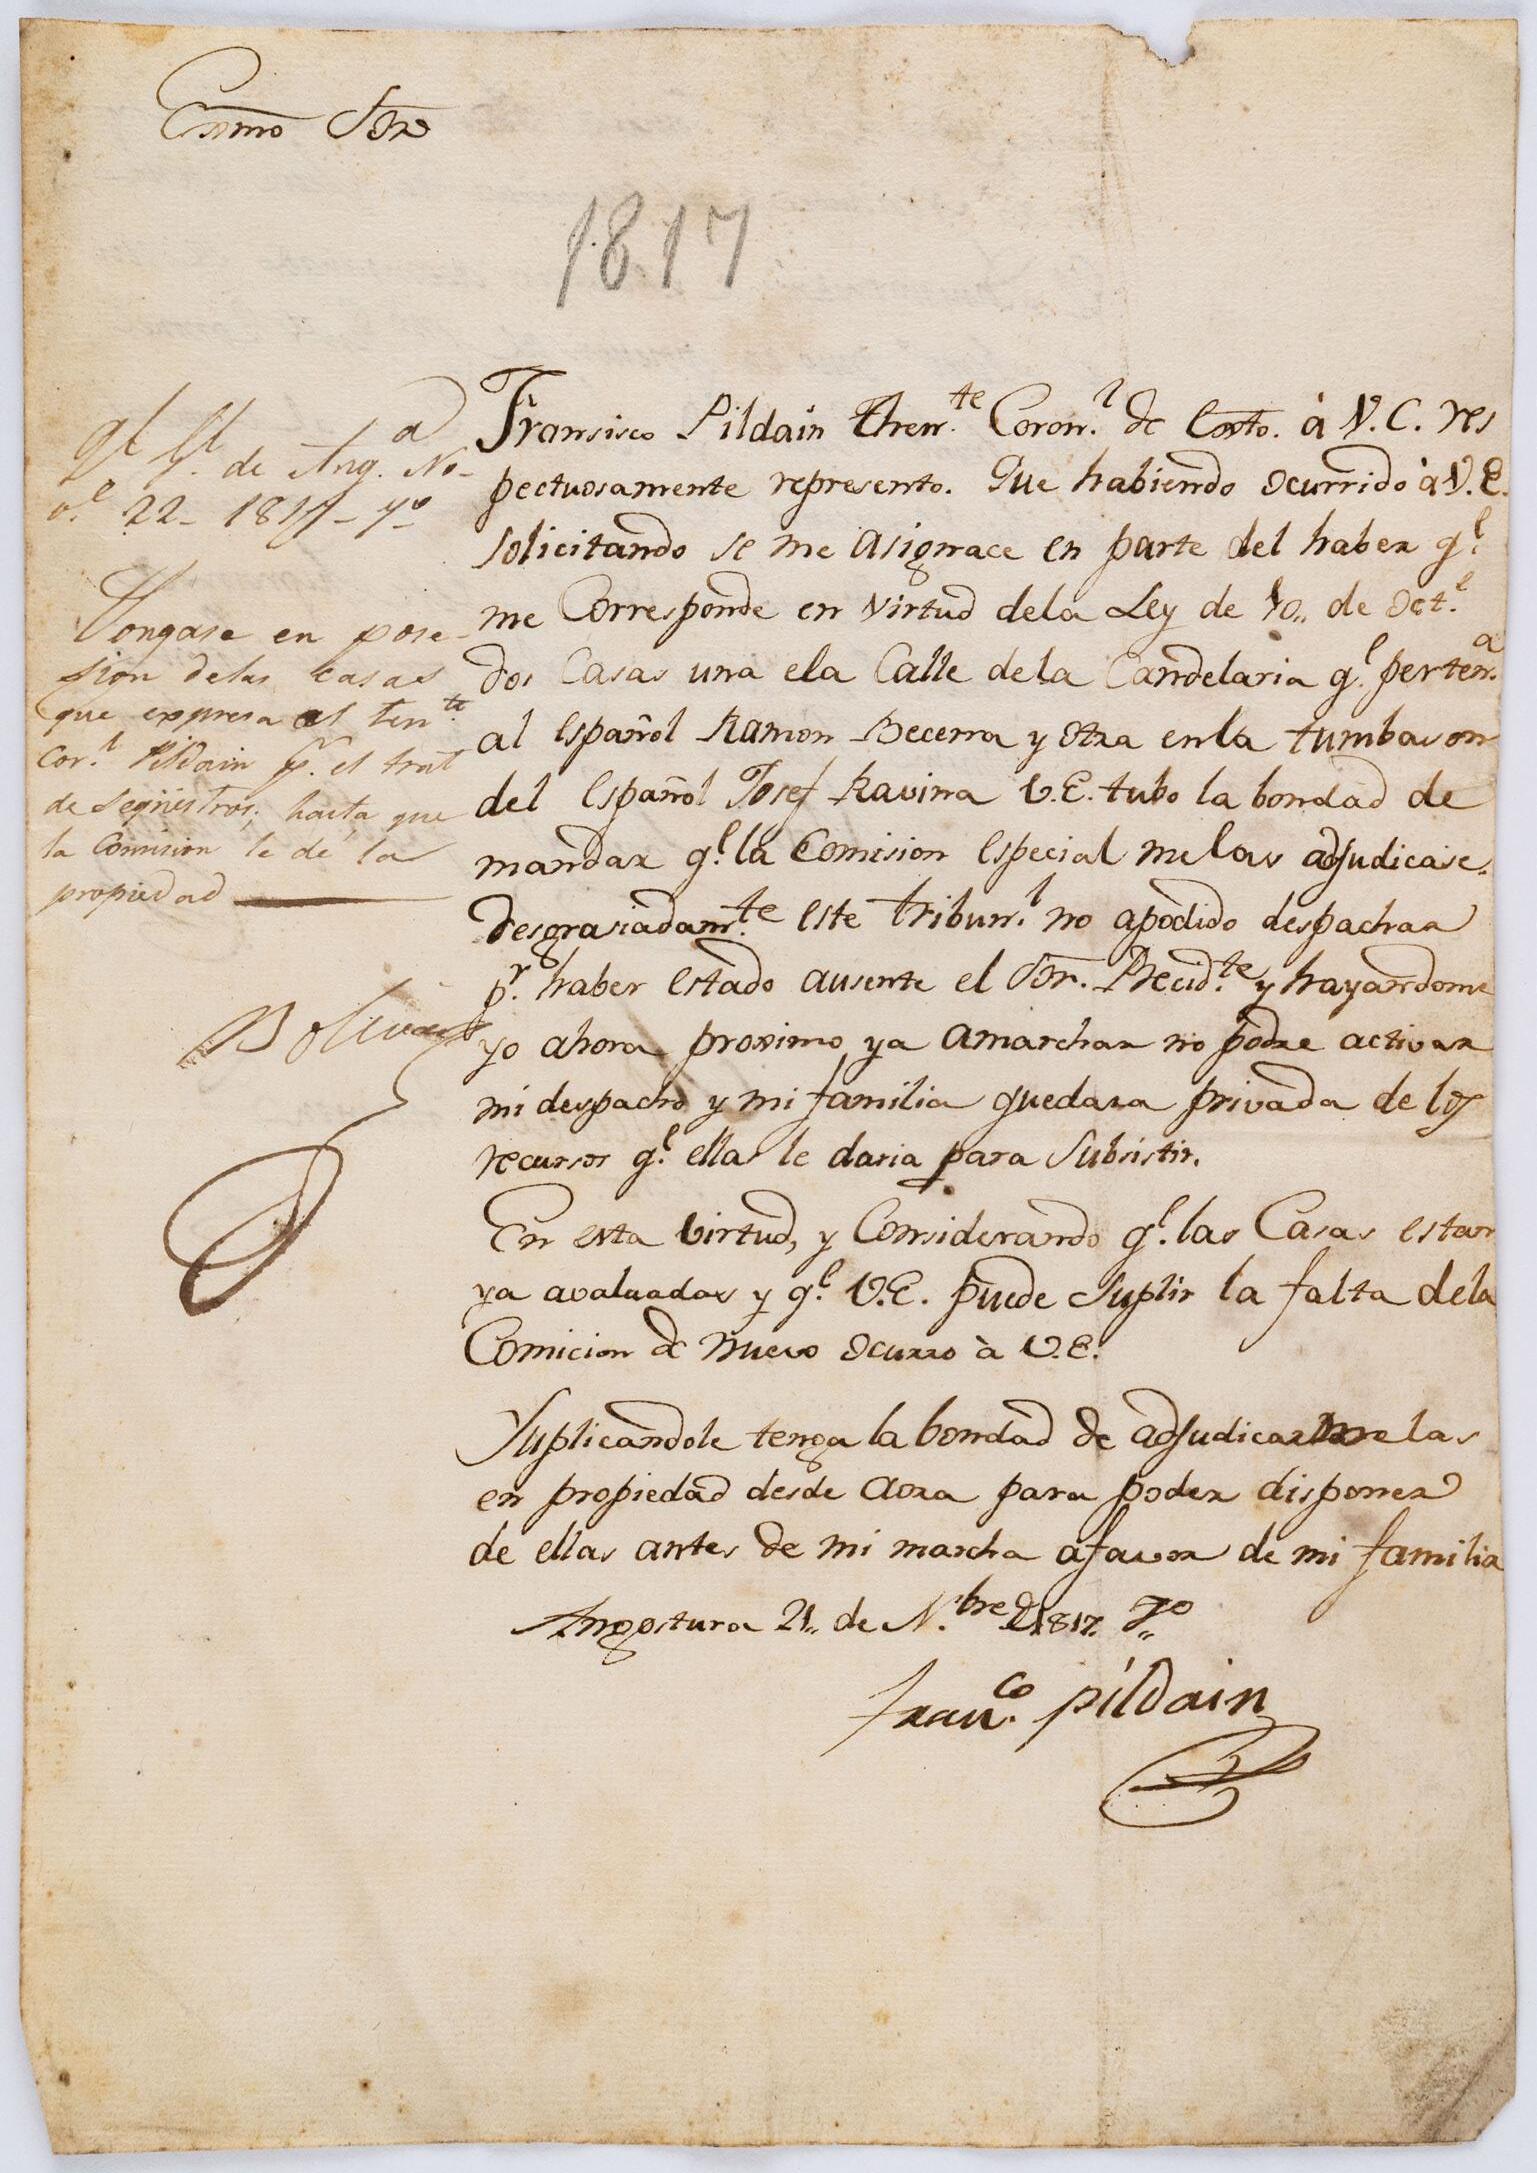 Exmo Sor
1817
Fransisco Pildain Thente. Coronl. de Exto. à V. E. res
pectuosamente represento. Que habiendo ocurrido à V. E.
solicitando se me asignace en parte del haber ql.
me Corresponde en virtud dela Ley de 10,, de Octe.
dos Casas una e la Calle dela Candelaria ql. pertena.
al Español Ramon Becerra y otra enla tumbason
del Español Josef Ravina V.E. tubo la bondad de
mandar ql. la Comision Especial melas adjudicase.
Desgrasiadamte. este tribunl. no apodido despachar
pr. haber estado ausente el Sor. Precidte. y hayandome
yo ahora proximo ya amarchar no podre activar
mi despacho y mi familia quedara privada de los
recursos ql. ella le daria para Subsistir.
En esta virtud, y Considerando ql. las Casas estan
ya avaluadas y ql. V.E. puede suplir la falta dela
Comicion de nuevo ocurro à V.E.
Suplicandole tenga la bondad de adjudicarmelas
en propiedad desde aora para poder disponer
de ellas antes de mi marcha afavor de mi familia
Angostura 21,, de N.bre de 1817. 7o
Franco. Pildain
Ql Gl. de Anga. No-
ve. 22- 1817- 7o
Pongase en pose-
sion delas casas
que expresa al tente.
Corl. Pildain pr. el tral
de Seqüestros; hasta que
la Comision le dé la
propiedad
Bolivar